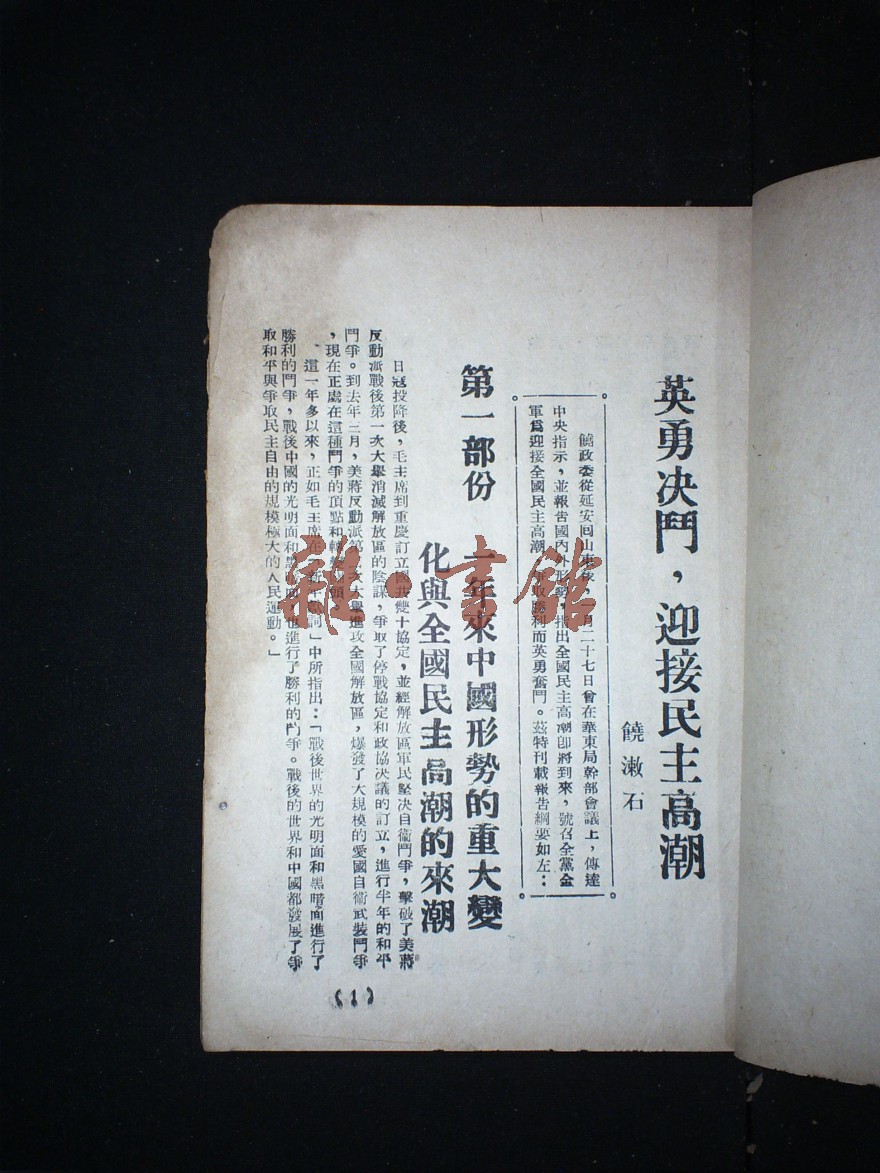 英勇决鬥，迎接民主高潮
饒漱石
饒政委從延安囘山東後 月二十七日曾在華東局幹部會議上，傳達
中央指示，並報告國內外形勢，指出全國民主高潮即將到來，號召全黨全
軍爲迎接全國民主高潮，爭取勝利而英勇奮鬥。茲特刊載報告綱要如左：
第一部份 一年來中國形勢的重大變
化與全國民主高潮的來潮
日寇投降後，毛主席到重慶訂立國共雙十協定，並經解放區軍民堅决自衞鬥爭，擊破了美蔣
反動派戰後第一次大舉消滅解放區的陰謀，爭取了停戰協定和政協决議的訂立，進行半年的和平
鬥爭。到去年三月，美蔣反動派第 次大舉進攻全國解放區，爆發了大規模的愛國自衞武裝鬥爭
，現在正處在這種鬥爭的頂點和轉
、這一年多以來，正如毛主席在「新年 詞」中所指出：「戰後世界的光明面和黑暗面進行了
勝利的鬥爭，戰後中國的光明面和 面也進行了勝利的鬥爭。戰後的世界和中國都發展了爭
取和平與爭取民主自由的規模極大的人民運動。」
(1)
雜·書館